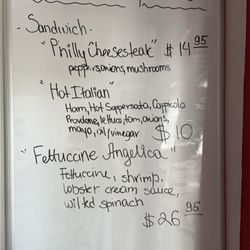 - Sandwich -
"Philly Cheesesteak" $14.95
peppers, onions, mushrooms
"Hot Italian"
Ham, Hot Suppersata, Cappicola
Provolone, lettuce, tom, onions,
mayo, oil/vinegar $10
"Fettuccine Angelica"
Fettuccine, shrimp,
lobster cream sauce,
wilted spinach
$26.95